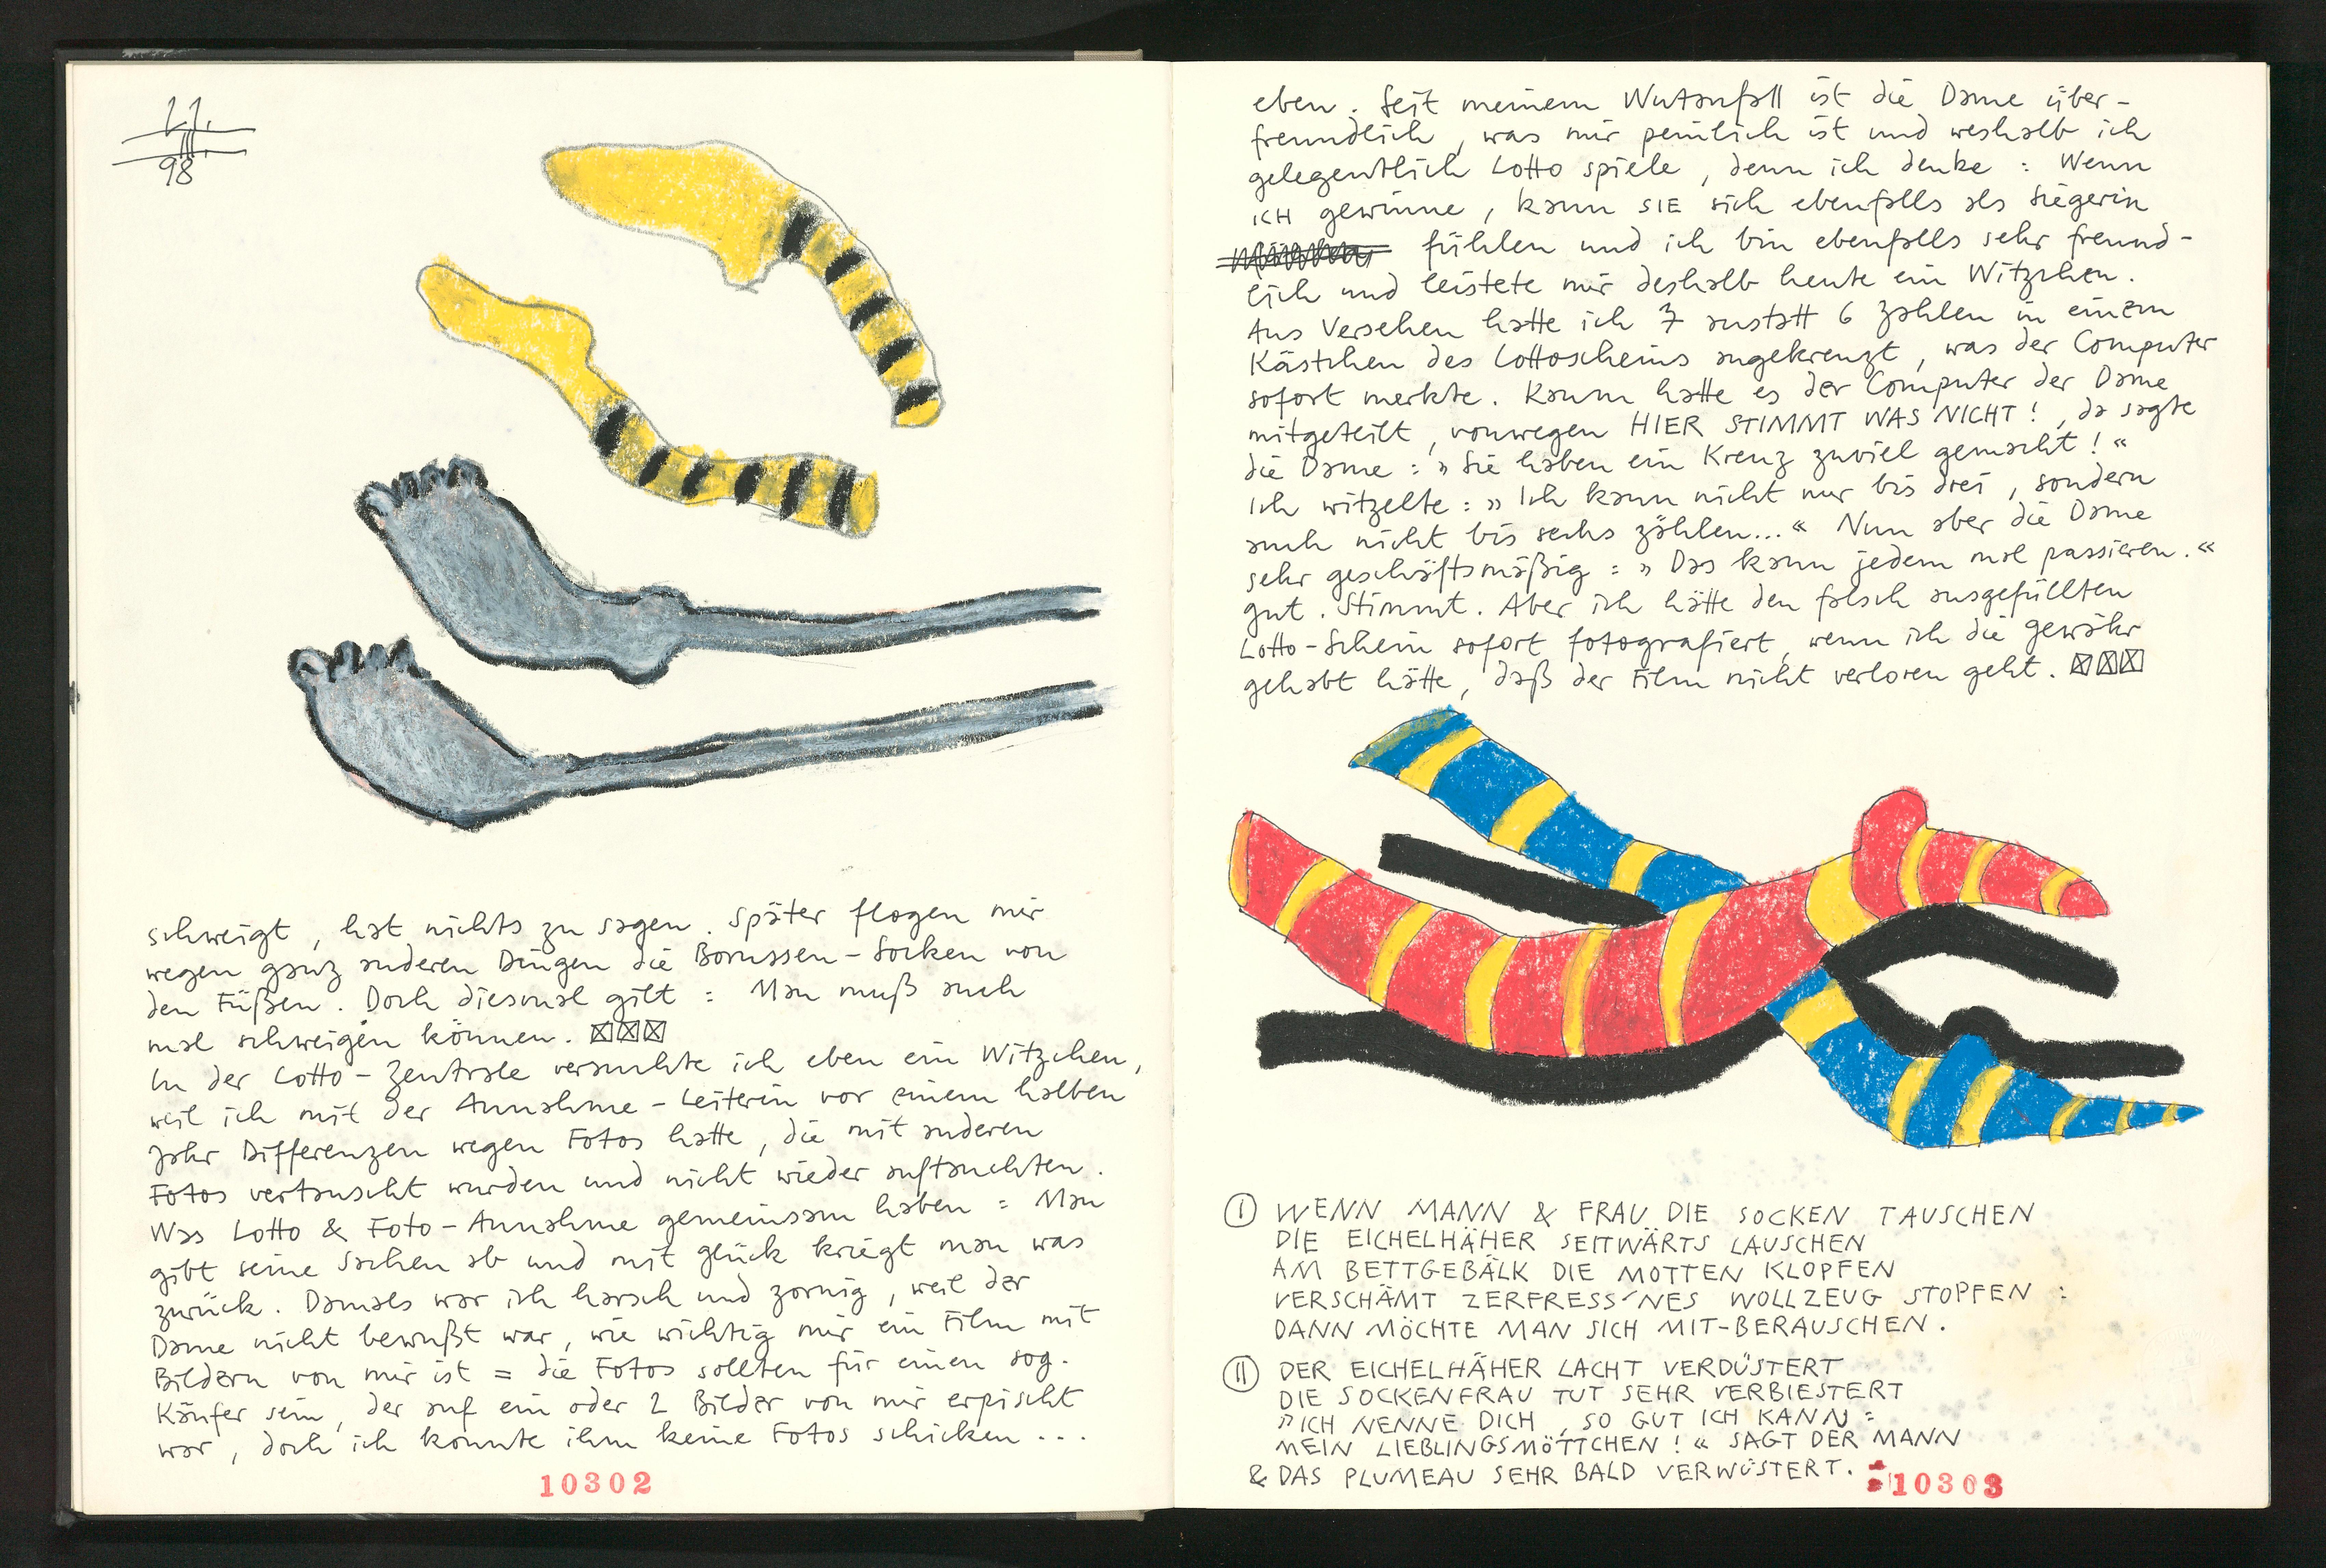 11.
III.
98
schweigt, hat nichts zu sagen. Später flogen mir
wegen ganz anderen Dingen die Borussen-Socken von
den Füßen. Doch diesmal gilt: Man muß auch
mal schweigen können. ☒☒☒
In der Lotto-Zentrale versuchte ich eben ein Witzchen,
weil ich mit der Annahme-Leiterin vor einem halben
Jahr Differenzen wegen Fotos hatte, die mit anderen
Fotos vertauscht wurden und nicht wieder auftauchten.
Was Lotto & Foto-Annahme gemeinsam haben: Man
gibt seine Sachen ab und mit Glück kriegt man was
zurück. Damals war ich harsch und zornig, weil der
Dame nicht bewußt war, wie wichtig mir ein Film mit
Bildern von mir ist = die Fotos sollten für einen sog.
Käufer sein, der auf ein oder 2 Bilder von mir erpischt
war, doch ich konnte ihm keine Fotos schicken...
10302
eben. Seit meinem Wutanfall ist die Dame über-
freundlich, was mir peinlich ist und weshalb ich
gelegentlich Lotto spiele, denn ich denke: Wenn
ICH gewinne, kann SIE sich ebenfalls als Siegerin
fühlen und ich bin ebenfalls sehr freund-
lich und leistete mir deshalb heute ein Witzchen.
Aus Versehen hatte ich 7 anstatt 6 Zahlen in einem
Kästchen des Lottoscheins angekreuzt, was der Computer
sofort merkte. Kaum hatte es der Computer der Dame
mitgeteilt, vonwegen HIER STIMMT WAS NICHT!, da sagte
die Dame: »Sie haben ein Kreuz zuviel gemacht!«
Ich witzelte: »Ich kann nicht nur bis drei, sondern
auch nicht bis sechs zählen...« Nun aber die Dame
sehr geschäftsmäßig: »Das kann jedem mal passieren.«
Gut. Stimmt. Aber ich hätte den falsch ausgefüllten
Lotto-Schein sofort fotografiert, wenn ich die Gewähr
gehabt hätte, daß der Film nicht verloren geht. ☒☒☒
I WENN MANN & FRAU DIE SOCKEN TAUSCHEN
DIE EICHELHÄHER SEITWÄRTS LAUSCHEN
AM BETTGEBÄLK DIE MOTTEN KLOPFEN
VERSCHÄMT ZERFRESS'NES WOLLZEUG STOPFEN:
DANN MÖCHTE MAN SICH MIT-BERAUSCHEN.
II DER EICHELHÄHER LACHT VERDÜSTERT
DIE SOCKENFRAU TUT SEHR VERBIESTERT
»ICH NENNE DICH, SO GUT ICH KANN:
MEIN LIEBLINGSMÖTTCHEN!« SAGT DER MANN
& DAS PLUMEAU SEHR BALD VERWÜSTERT.
10303